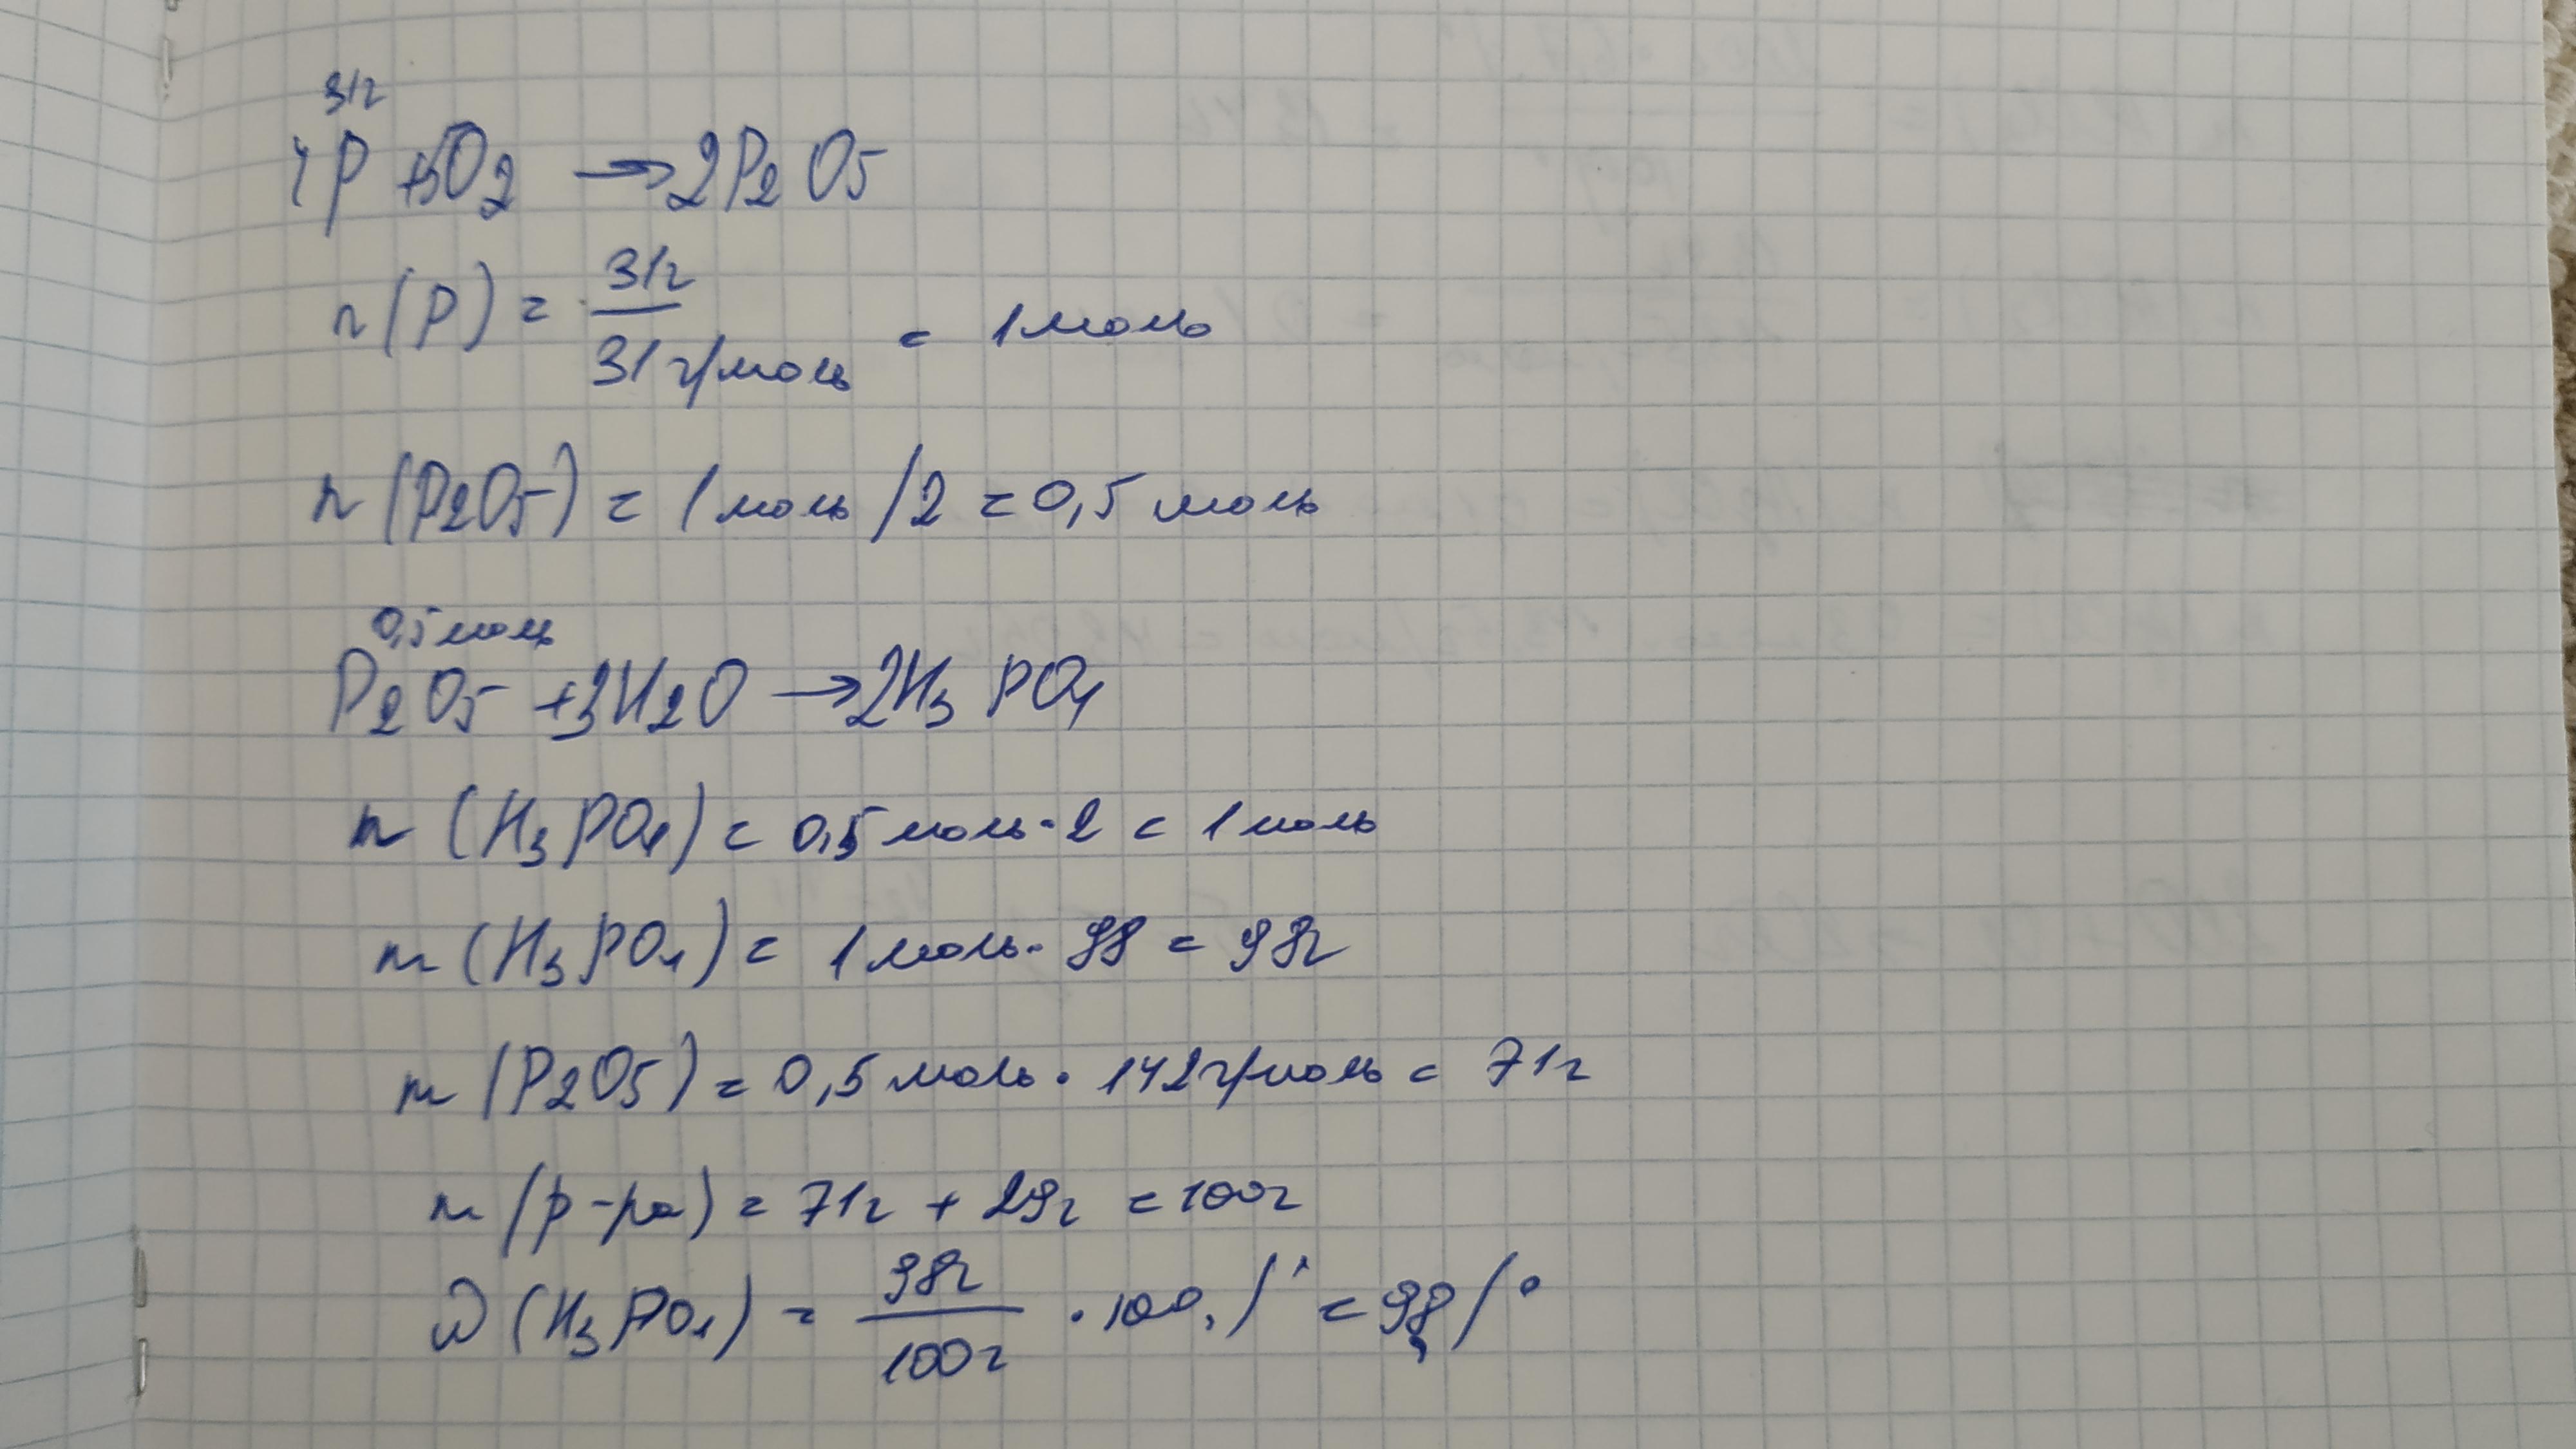 31г
4P + 5O2 → 2P2O5
n(P) = 31г / 31г/моль = 1моль
n(P2O5) = 1моль/2 = 0,5 моль
0,5 моль
P2O5 + 3H2O → 2H3PO4
n(H3PO4) = 0,5 моль · 2 = 1 моль
m(H3PO4) = 1 моль · 98 = 98г
m(P2O5) = 0,5 моль · 142г/моль = 71г
m(р-ра) = 71г + 29г = 100г
ω(H3PO4) = 98г / 100г · 100% = 98%